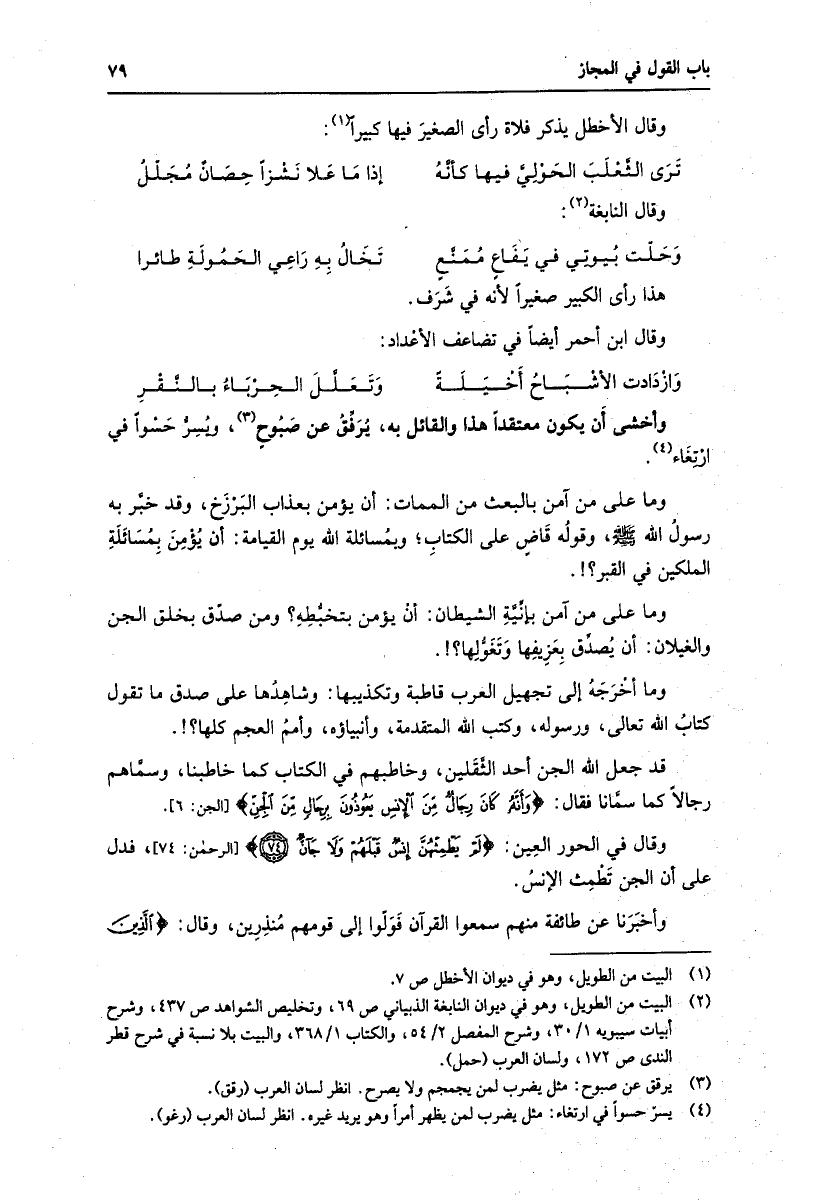 باب القول في المجاز ٧٩
وقال الأخطل يذكر فلاة رأى الصغيرَ فيها كبيراً(١):
تَرَى الثَّعْلَبَ الحَوْلِيَّ فيها كأنَّهُ إذا مَا عَلا نَشْزاً حِصَانٌ مُجَلّلُ
وقال النابغة(٢):
وَحَلّت بُيوتِي في يَفَاعٍ مُمَنَّعٍ تَخَالُ بِهِ رَاعِي الحَمُولَةِ طائرا
هذا رأى الكبير صغيراً لأنه في شَرَف.
وقال ابن أحمر أيضاً في تضاعف الأعْداد:
وَازْدَادت الأشْبَاحُ أَخْيِلَةً وَتَعَلَّلَ الحِرْبَاءُ بالنَّقْرِ
وأخشى أَن يكون معتقداً هذا والقائل به، يُرَقِّقُ عن صَبُوحٍ(٣)، ويُسِرُّ حَسْواً في
ارْتِغَاء(٤).
وما على من آمن بالبعث من الممات: أن يؤمن بعذاب البَرْزَخ، وقد خبَّر به
رسولُ الله ﷺ، وقولُه قَاضٍ على الكتابِ؛ وبمُسائلة الله يوم القيامة: أن يُؤْمِنَ بِمُسَائَلَةِ
الملكين في القبر؟!.
وما على من آمن بإنِّيَّةِ الشيطان: أنْ يؤمن بتخبُّطِهِ؟ ومن صدّق بخلق الجن
والغيلان: أن يُصدِّق بِعَزِيفِها وَتَغَوُّلِها؟!.
وما أخْرَجَهُ إلى تجهيل العرب قاطبة وتكذيبها: وشاهِدُها على صدق ما تقول
كتابُ الله تعالى، ورسوله، وكتب الله المتقدمة، وأنبياؤه، وأممُ العجم كلها؟!.
قد جعل الله الجن أحد الثَّقَلين، وخاطبهم في الكتاب كما خاطبنا، وسمَّاهم
رجالاً كما سمَّانا فقال: ﴿وَأَنَّهُ كَانَ رِجَالٌ مِّنَ ٱلْإِنسِ يَعُوذُونَ بِرِجَالٍ مِّنَ ٱلْجِنِّ﴾ [الجن: ٦].
وقال في الحور العِين: ﴿لَمْ يَطْمِثْهُنَّ إِنسٌ قَبْلَهُمْ وَلَا جَآنٌّ ٧٤﴾ [الرحمٰن: ٧٤]، فدل
على أن الجن تَطْمِث الإنسُ.
وأخبَرَنا عن طائفة منهم سمعوا القرآن فَوَلّوا إلى قومهم مُنذِرِين، وقال: ﴿ٱلَّذِينَ
(١) البيت من الطويل، وهو في ديوان الأخطل ص ٧.
(٢) البيت من الطويل، وهو في ديوان النابغة الذبياني ص ٦٩، وتخليص الشواهد ص ٤٣٧، وشرح
أبيات سيبويه ١/ ٣٠، وشرح المفصل ٢/ ٥٤، والكتاب ١/ ٣٦٨، والبيت بلا نسبة في شرح قطر
الندى ص ١٧٢، ولسان العرب (حمل).
(٣) يرقق عن صبوح: مثل يضرب لمن يجمجم ولا يصرح. انظر لسان العرب (رقق).
(٤) يسرّ حسواً في ارتغاء: مثل يضرب لمن يظهر أمراً وهو يريد غيره. انظر لسان العرب (رغو).